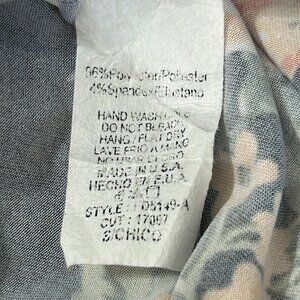 96% Polyester/Poliester
4% Spandex/Elastano
HAND WASH COLD
DO NOT BLEACH
HANG / FLAT DRY
LAVE FRIO A MANO
NO USAR CLORO
MADE IN U.S.A.
HECHO EN E.U.A.
STYLE : FD5149-A
CUT : 17097
S/CHICO